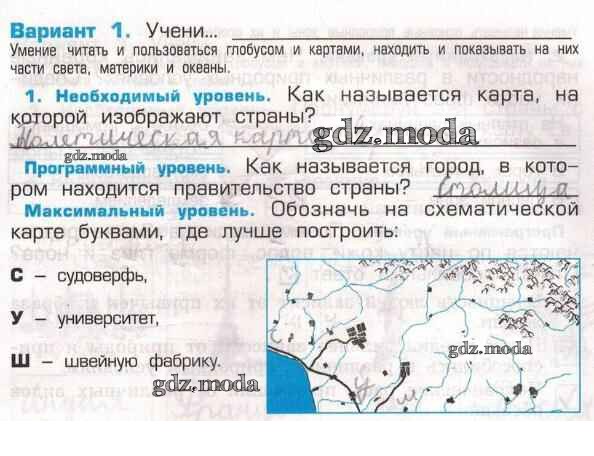 Вариант 1. Учени...
Умение читать и пользоваться глобусом и картами, находить и показывать на них
части света, материки и океаны.
1. Необходимый уровень. Как называется карта, на
которой изображают страны?
Политическая карта
gdz.moda
gdz.moda
Программный уровень. Как называется город, в кото-
ром находится правительство страны? Столица
Максимальный уровень. Обозначь на схематической
карте буквами, где лучше построить:
С – судоверфь,
У – университет,
Ш – швейную фабрику.
gdz.moda
gdz.moda
С
У